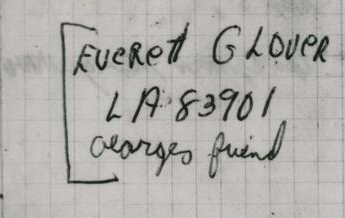 Everett GLOVER
LA 83901
Georges friend